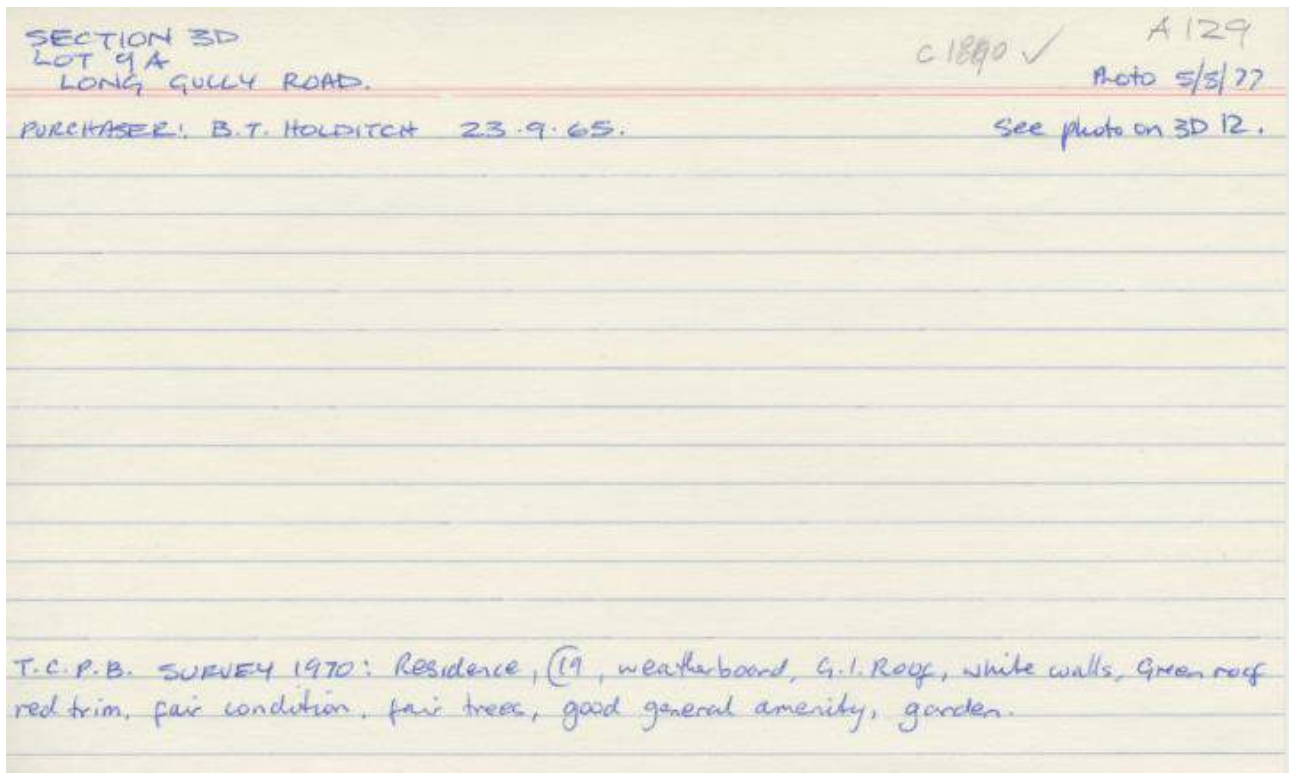 SECTION 3D
LOT 9A
LONG GULLY ROAD.
C 1890 ✓
A129
Photo 5/8/77
PURCHASER: B.T. HOLDITCH 23.9.65.
See photo on 3D 12.
T.C.P.B. SURVEY 1970: Residence, C19, weatherboard, G.I. Roof, white walls, Green roof
red trim, fair condition, fair trees, good general amenity, garden.